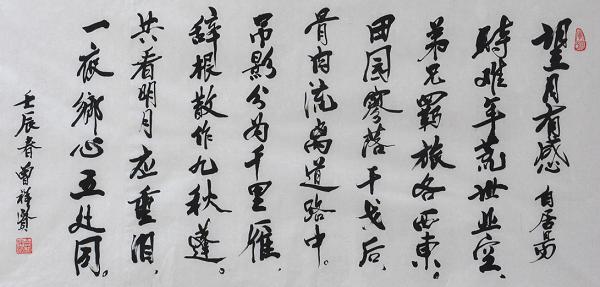 望月有感 白居易
時难年荒世业空、
弟兄羁旅各西東。
田园寥落干戈后、
骨肉流离道路中。
吊影分为千里雁、
辞根散作九秋蓬。
共看明月应垂泪、
一夜鄉心五处同。
壬辰春曾祥贤